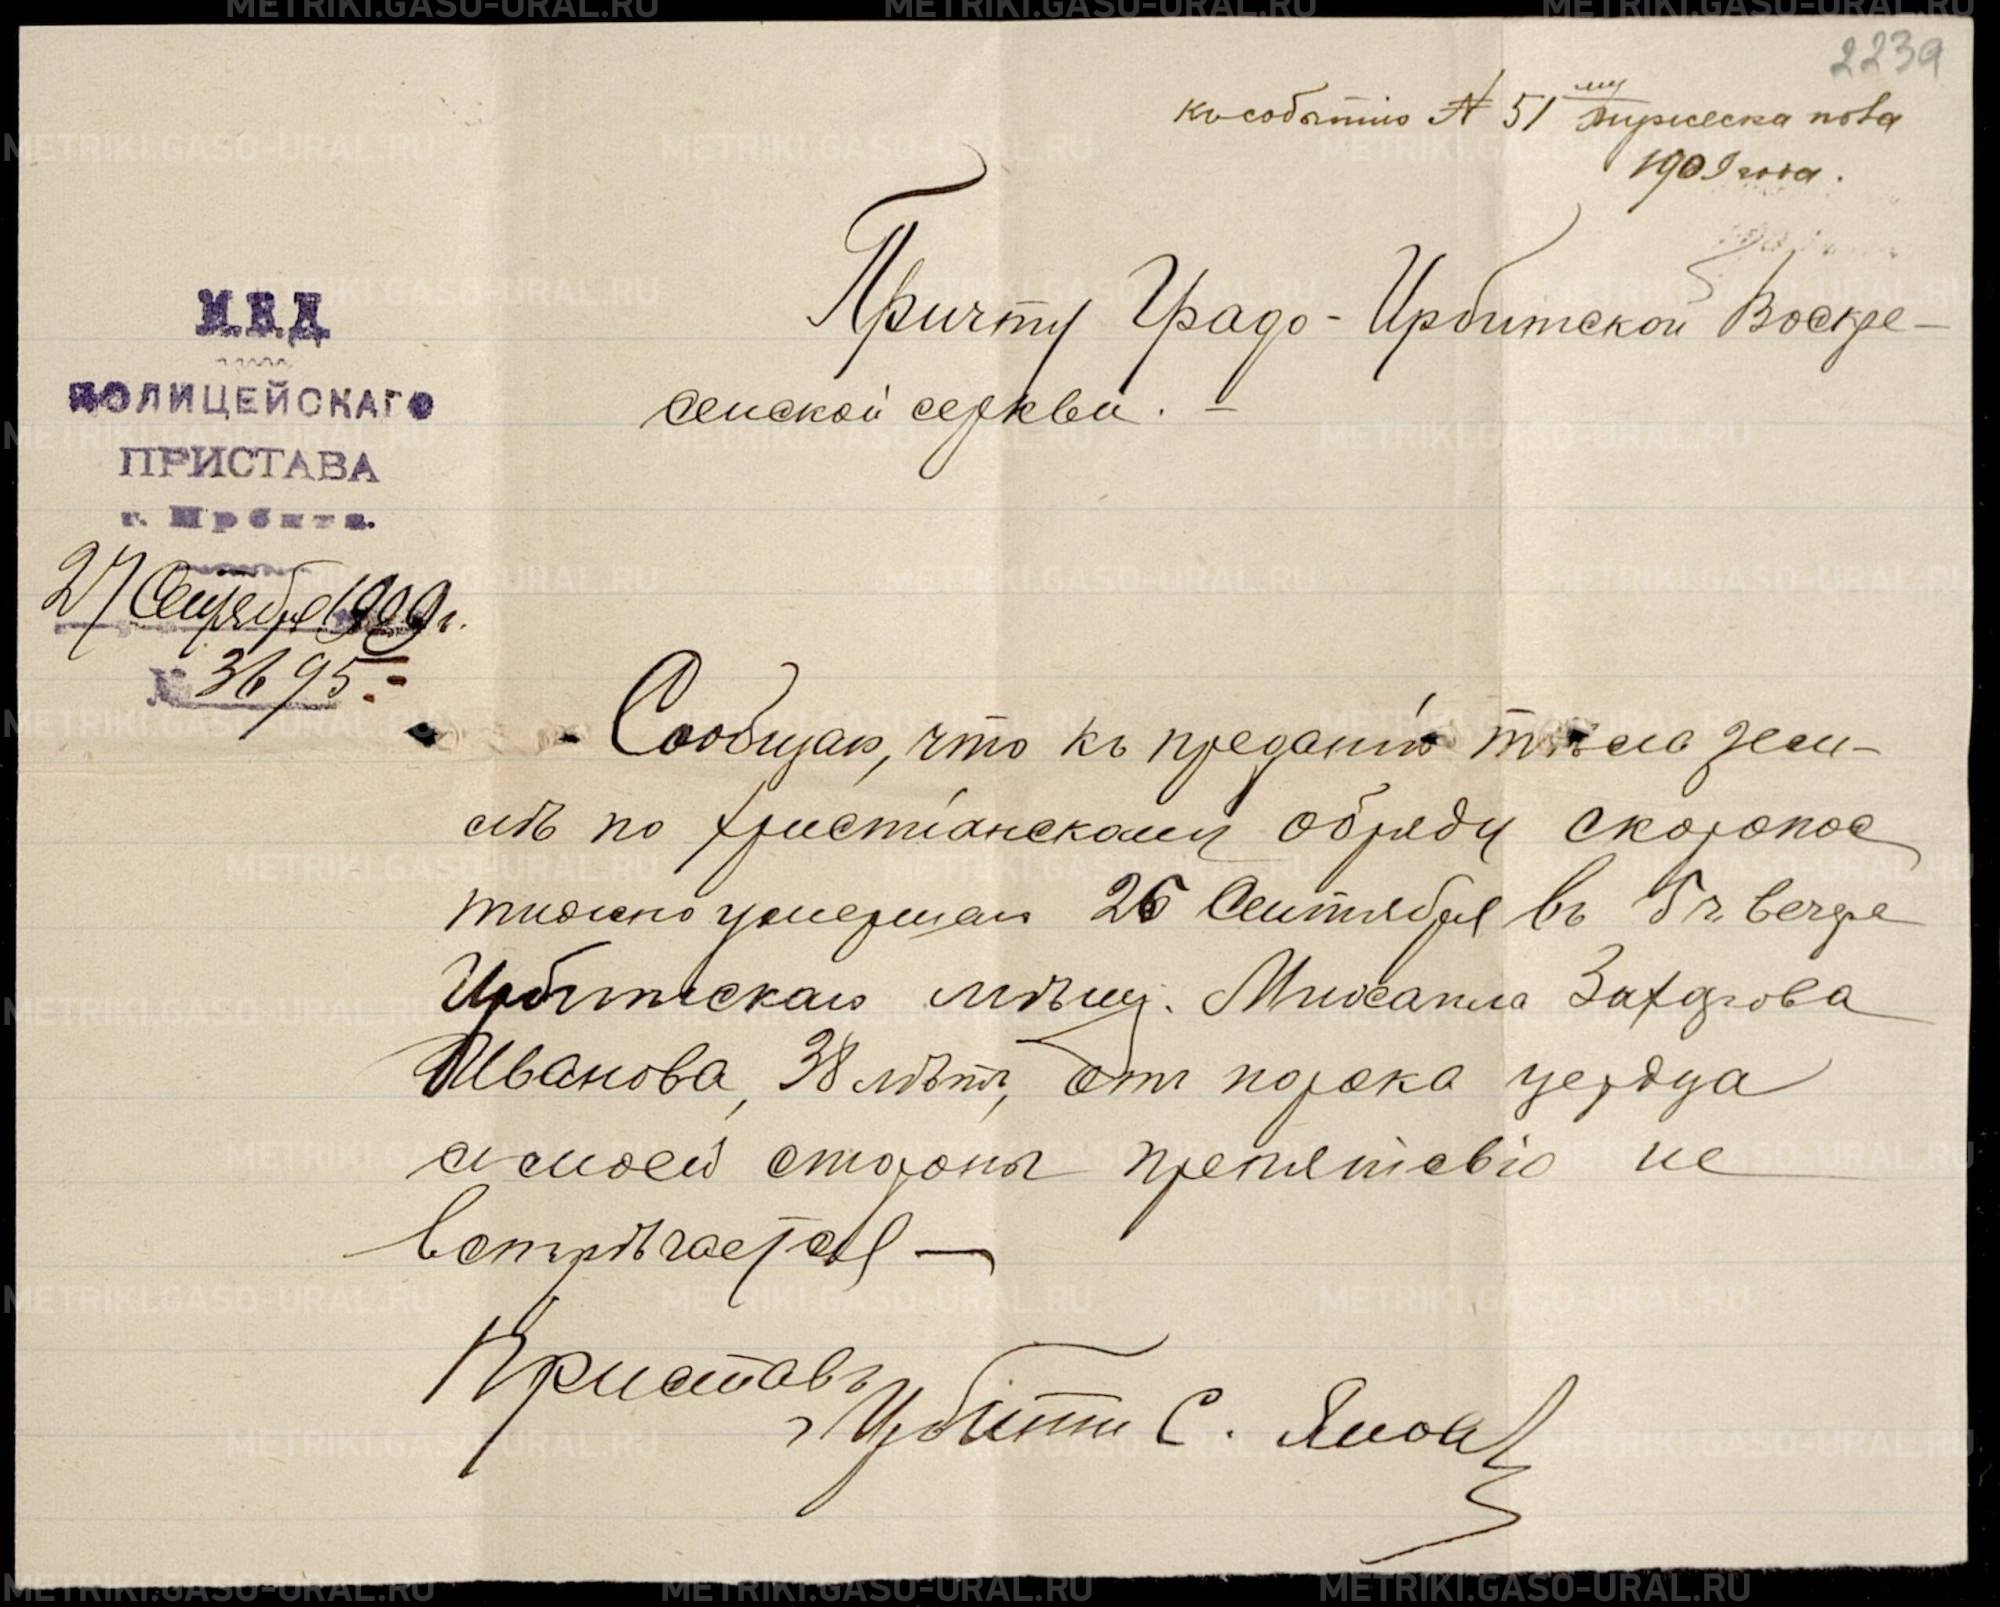 2239
къ событiю № 51 му мужеска пола
1909 года.
М.В.Д
ПОЛИЦЕЙСКАГО
ПРИСТАВА
г. Ирбита.
27 Сентября 1909 г.
№ 3695.
Причту Градо-Ирбитской Воскре-
сенской церкви. –
Сообщаю, что къ преданiю тѣла зем-
лѣ по христiанскому обряду скоропос
тижно умершаго 26 Сентября въ 5 ч вечера
Ирбитскаго мѣщ. Михаила Захарова
Иванова, 38 лѣтъ, отъ порока сердца
съ моей стороны препятствiю не
встрѣчается —
Приставъ
г. Ирбити С.
METRIKI.GASO-URAL.RU